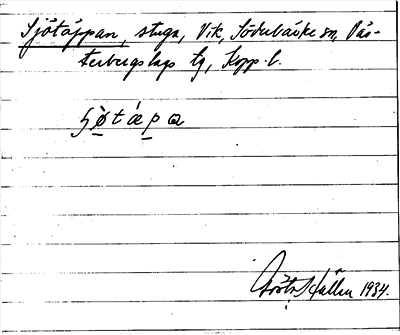 Sjötäppan, stuga, Vik, Söderbärke sn, Väs-
terbergslags tg, Kopp. l.
ʃø̀tǽpa
Gösta Källen 1934.